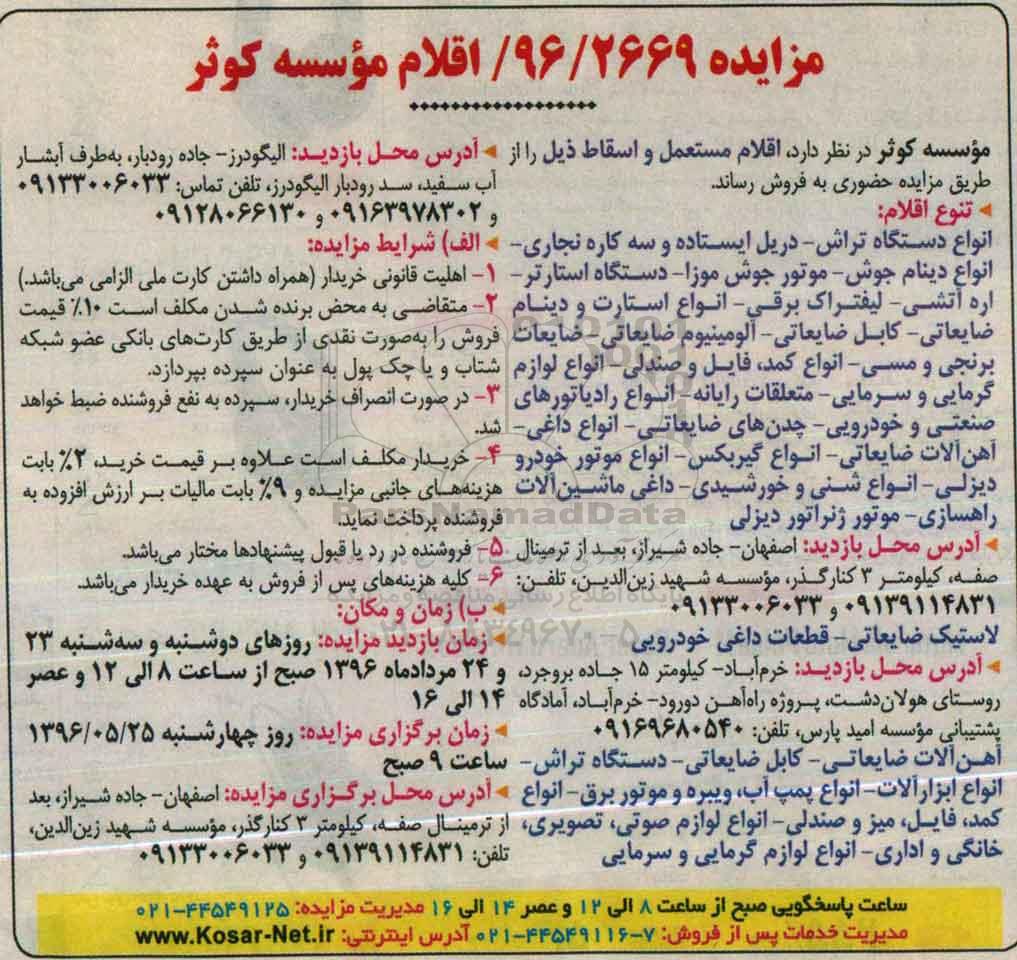 مزایده ۹۶/۲۶۶۹/ اقلام مؤسسه کوثر
مؤسسه کوثر در نظر دارد، اقلام مستعمل و اسقاط ذیل را از
طریق مزایده حضوری به فروش رساند.
تنوع اقلام:
انواع دستگاه تراش- دریل ایستاده و سه کاره نجاری-
انواع دینام جوش- موتور جوش موزا- دستگاه استارتر-
اره آتشی- لیفتراک برقی- انواع استارت و دینام
ضایعاتی- کابل ضایعاتی- آلومینیوم ضایعاتی- ضایعات
برنجی و مسی- انواع کمد، فایل و صندلی- انواع لوازم
گرمایی و سرمایی- متعلقات رایانه- انواع رادیاتورهای
صنعتی و خودرویی- چدن‌های ضایعاتی- انواع داغی-
آهن‌آلات ضایعاتی- انواع گیربکس- انواع موتور خودرو
دیزلی- انواع شنی و خورشیدی- داغی ماشین‌آلات
راهسازی- موتور ژنراتور دیزلی
آدرس محل بازدید: اصفهان- جاده شیراز، بعد از ترمینال
صفه، کیلومتر ۳ کنارگذر، مؤسسه شهید زین‌الدین، تلفن:
۰۹۱۳۹۱۱۴۸۳۱ و ۰۹۱۳۳۰۰۶۰۳۳
لاستیک ضایعاتی- قطعات داغی خودرویی
آدرس محل بازدید: خرم‌آباد- کیلومتر ۱۵ جاده بروجرد،
روستای هولان‌دشت، پروژه راه‌آهن دورود- خرم‌آباد، آمادگاه
پشتیبانی مؤسسه امید پارس، تلفن: ۰۹۱۶۹۶۸۰۵۴۰
آهن‌آلات ضایعاتی- کابل ضایعاتی- دستگاه تراش-
انواع ابزارآلات- انواع پمپ آب، ویبره و موتور برق- انواع
کمد، فایل، میز و صندلی- انواع لوازم صوتی، تصویری،
خانگی و اداری- انواع لوازم گرمایی و سرمایی
آدرس محل بازدید: الیگودرز- جاده رودبار، به‌طرف آبشار
آب سفید، سد رودبار الیگودرز، تلفن تماس: ۰۹۱۳۳۰۰۶۰۳۳
و ۰۹۱۶۳۹۷۸۳۰۲ و ۰۹۱۲۸۰۶۶۱۳۰
الف) شرایط مزایده:
۱- اهلیت قانونی خریدار (همراه داشتن کارت ملی الزامی می‌باشد.)
۲- متقاضی به محض برنده شدن مکلف است ۱۰٪ قیمت
فروش را به‌صورت نقدی از طریق کارت‌های بانکی عضو شبکه
شتاب و یا چک پول به عنوان سپرده بپردازد.
۳- در صورت انصراف خریدار، سپرده به نفع فروشنده ضبط خواهد
شد.
۴- خریدار مکلف است علاوه بر قیمت خرید، ۲٪ بابت
هزینه‌های جانبی مزایده و ۹٪ بابت مالیات بر ارزش افزوده به
فروشنده پرداخت نماید.
۵- فروشنده در رد یا قبول پیشنهادها مختار می‌باشد.
۶- کلیه هزینه‌های پس از فروش به عهده خریدار می‌باشد.
ب) زمان و مکان:
زمان بازدید مزایده: روزهای دوشنبه و سه‌شنبه ۲۳
و ۲۴ مردادماه ۱۳۹۶ صبح از ساعت ۸ الی ۱۲ و عصر
۱۴ الی ۱۶
زمان برگزاری مزایده: روز چهارشنبه ۱۳۹۶/۰۵/۲۵
ساعت ۹ صبح
آدرس محل برگزاری مزایده: اصفهان- جاده شیراز، بعد
از ترمینال صفه، کیلومتر ۳ کنارگذر، مؤسسه شهید زین‌الدین،
تلفن: ۰۹۱۳۹۱۱۴۸۳۱ و ۰۹۱۳۳۰۰۶۰۳۳
ساعت پاسخگویی صبح از ساعت ۸ الی ۱۲ و عصر ۱۴ الی ۱۶ مدیریت مزایده: ۰۲۱-۴۴۵۴۹۱۲۵
مدیریت خدمات پس از فروش: ۰۲۱-۴۴۵۴۹۱۱۶-۷ آدرس اینترنتی: www.Kosar-Net.ir
ParsNamadData